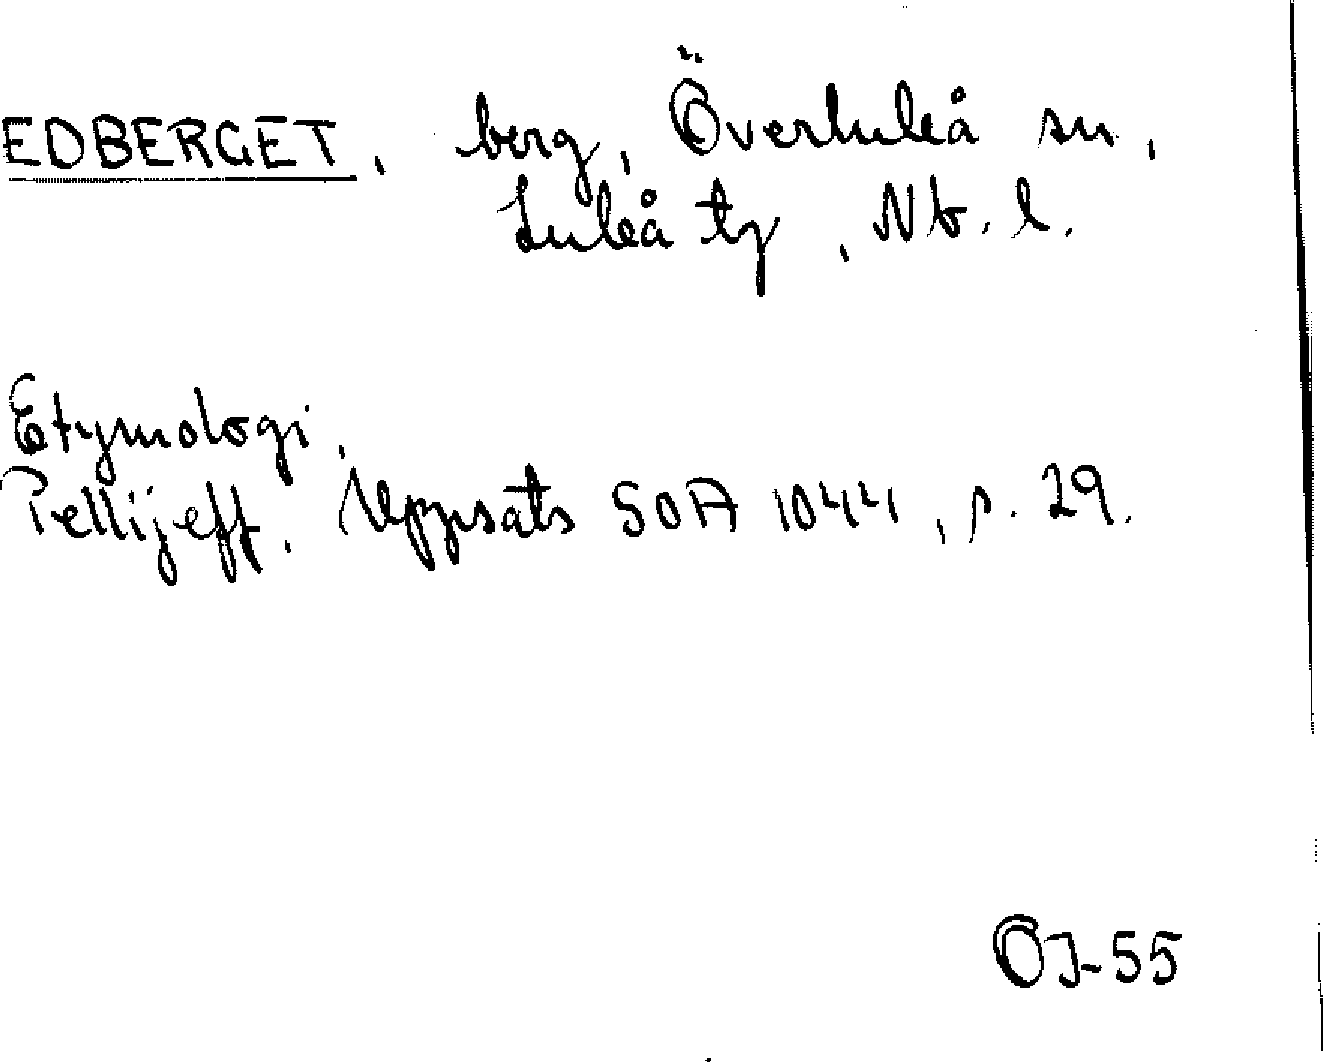 EDBERGET, berg, Överluleå sn,
Luleå tg, Nb. l.
Etymologi,
Pellijeff, Uppsats SOA 1044, s. 29.
OJ-55